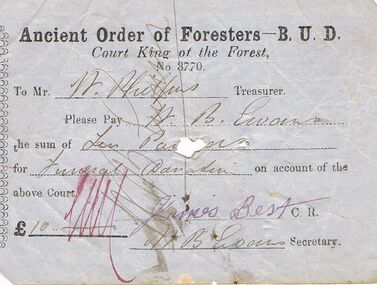 Ancient Order of Foresters—B. U. D.
Court King of the Forest,
No 3770.
To Mr. W. Treasurer.
Please Pay W. B. Evans
the sum of Ten Pounds
for Funeral Donation on account of the
above Court.
James Best C. R.
£ 10
W B Evans Secretary.